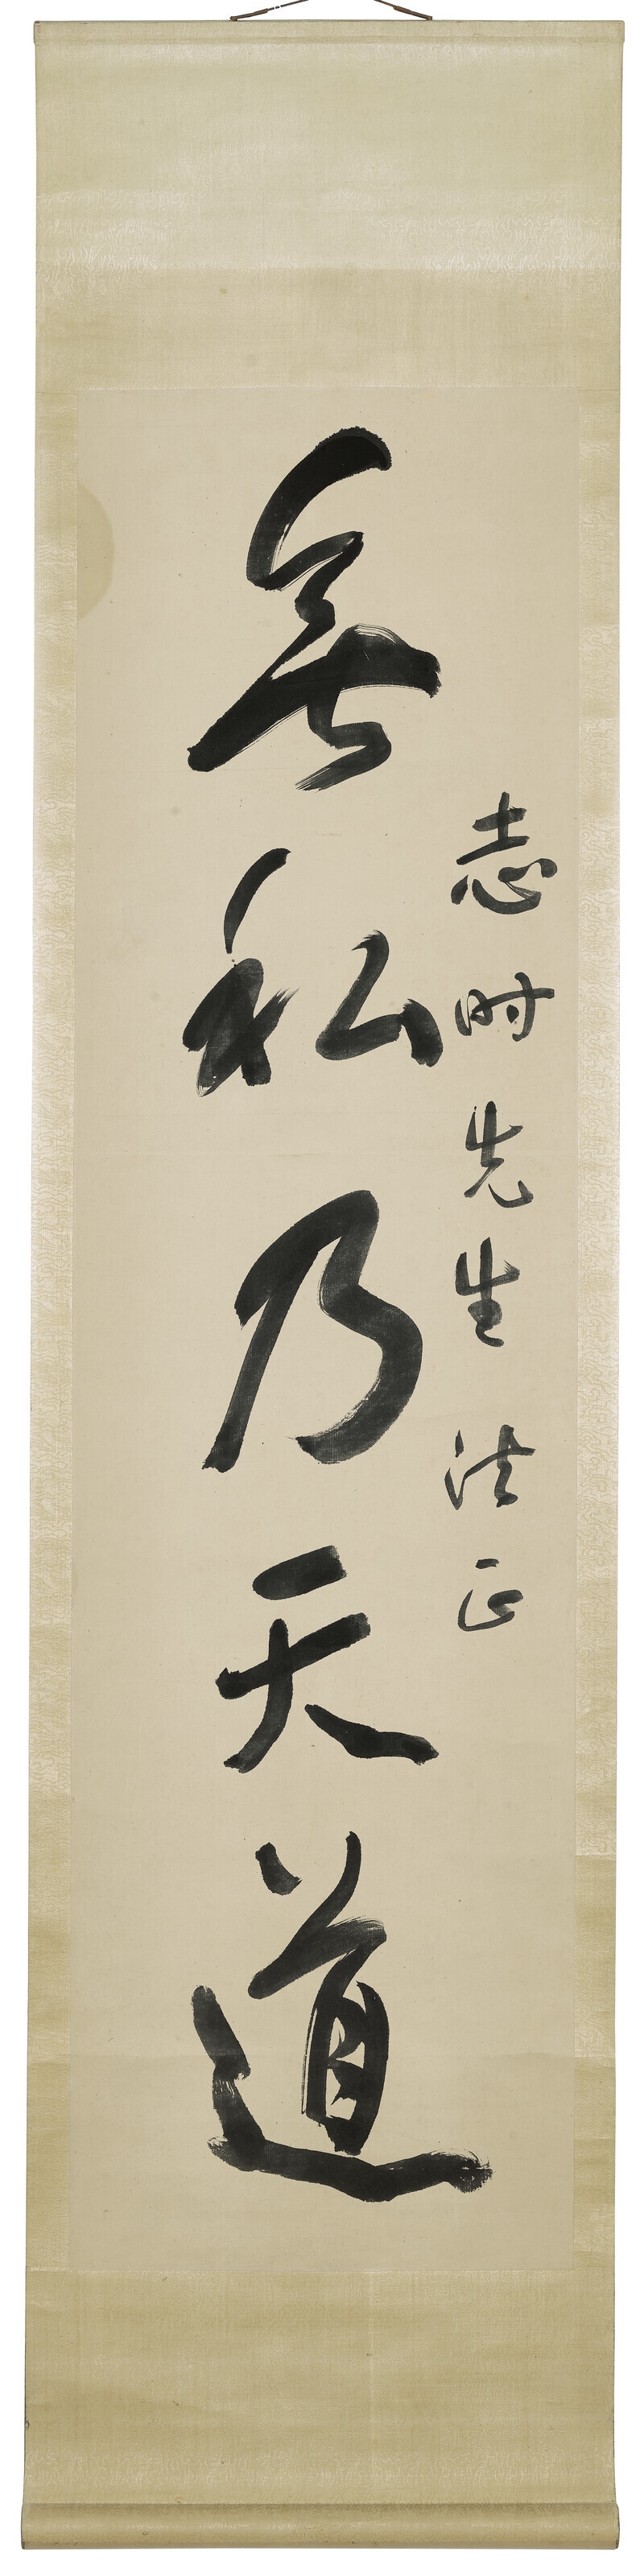 志时先生法正
無私乃天道